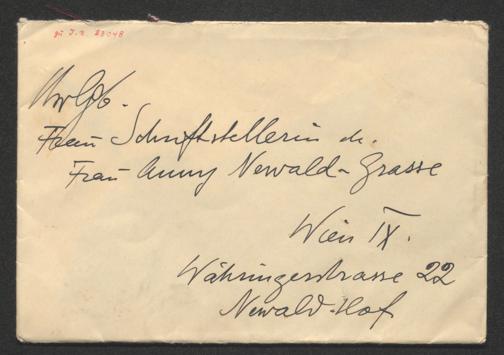 zu I.N. 23048
Hwlgb.
Frau Schriftstellerin dr.
Frau Anny Newald-Grasse
Wien IX.
Währingerstrasse 22
Newald-Hof